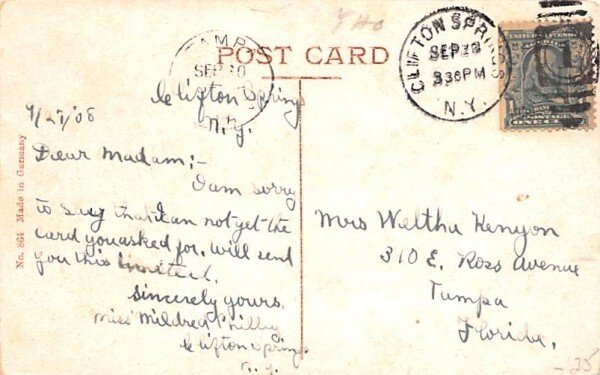 POST CARD
CLIFTON SPRINGS
SEP 28
330PM
N.Y.
SEP 30
Clifton Springs
N.Y.
9/27/08
Dear Madam:-
I am sorry
to say that I can not get the
card you asked for, will send
you this instead.
Sincerely yours,
Miss Mildred
Clifton Springs
N.Y.
Mrs Welthu Kenyon
310 E. Ross Avenue
Tampa
Florida.
No. 864 Made in Germany
-25